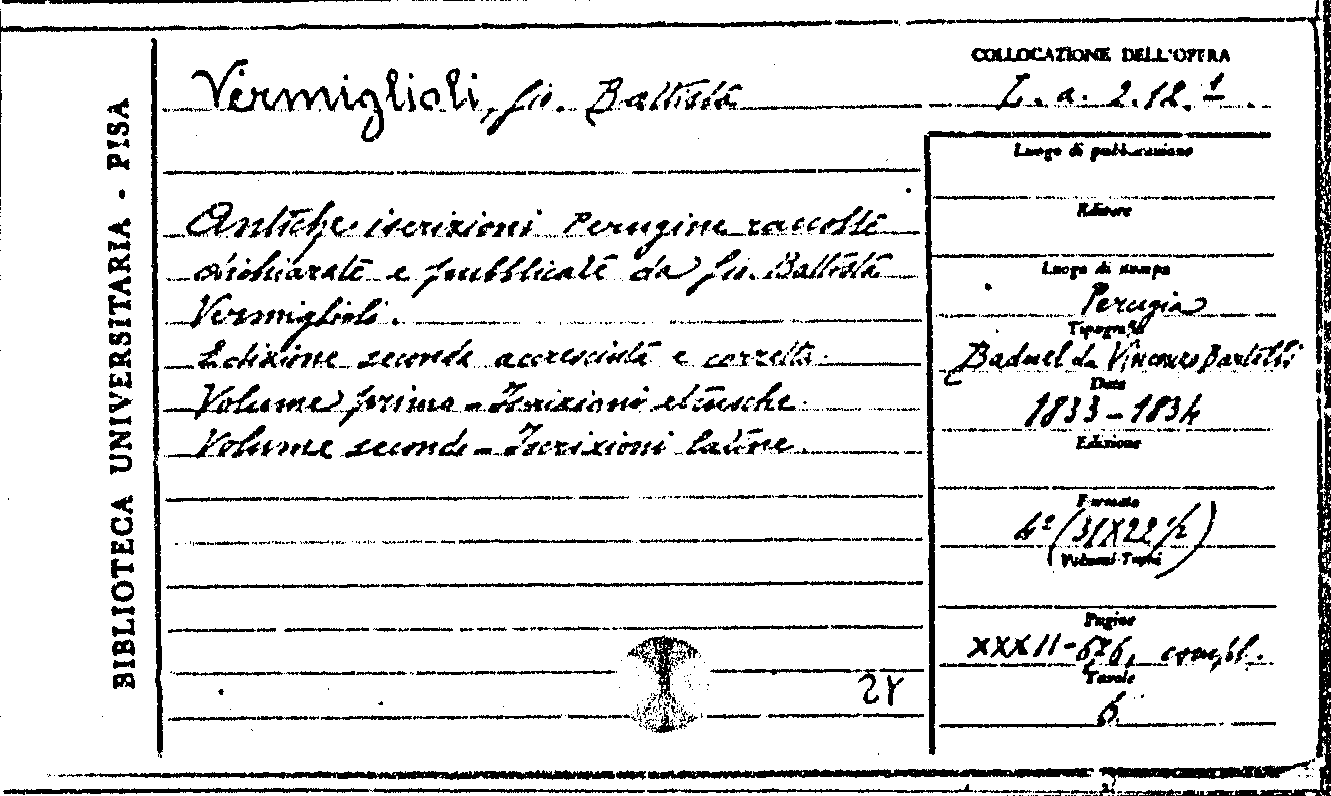 BIBLIOTECA UNIVERSITARIA - PISA
Vermiglioli, Gio. Battista
COLLOCAZIONE DELL'OPERA
Z. a. 2.12.1.
Antiche iscrizioni Perugine raccolte
dichiarate e pubblicate da Gio. Battista
Vermiglioli.
Edizione seconda accresciuta e corretta.
Volume primo - Iscrizioni etrusche.
Volume secondo - Iscrizioni latine.
24
Luogo di pubblicazione
Editore
Luogo di stampa
Perugia
Tipografia
Baduel da Vincenzo Bartelli
Data
1833-1834
Edizione
Formato
4° (31X22 1/2)
Volumi-Tomi
Pagine
XXXII-676, compl.
Tavole
6